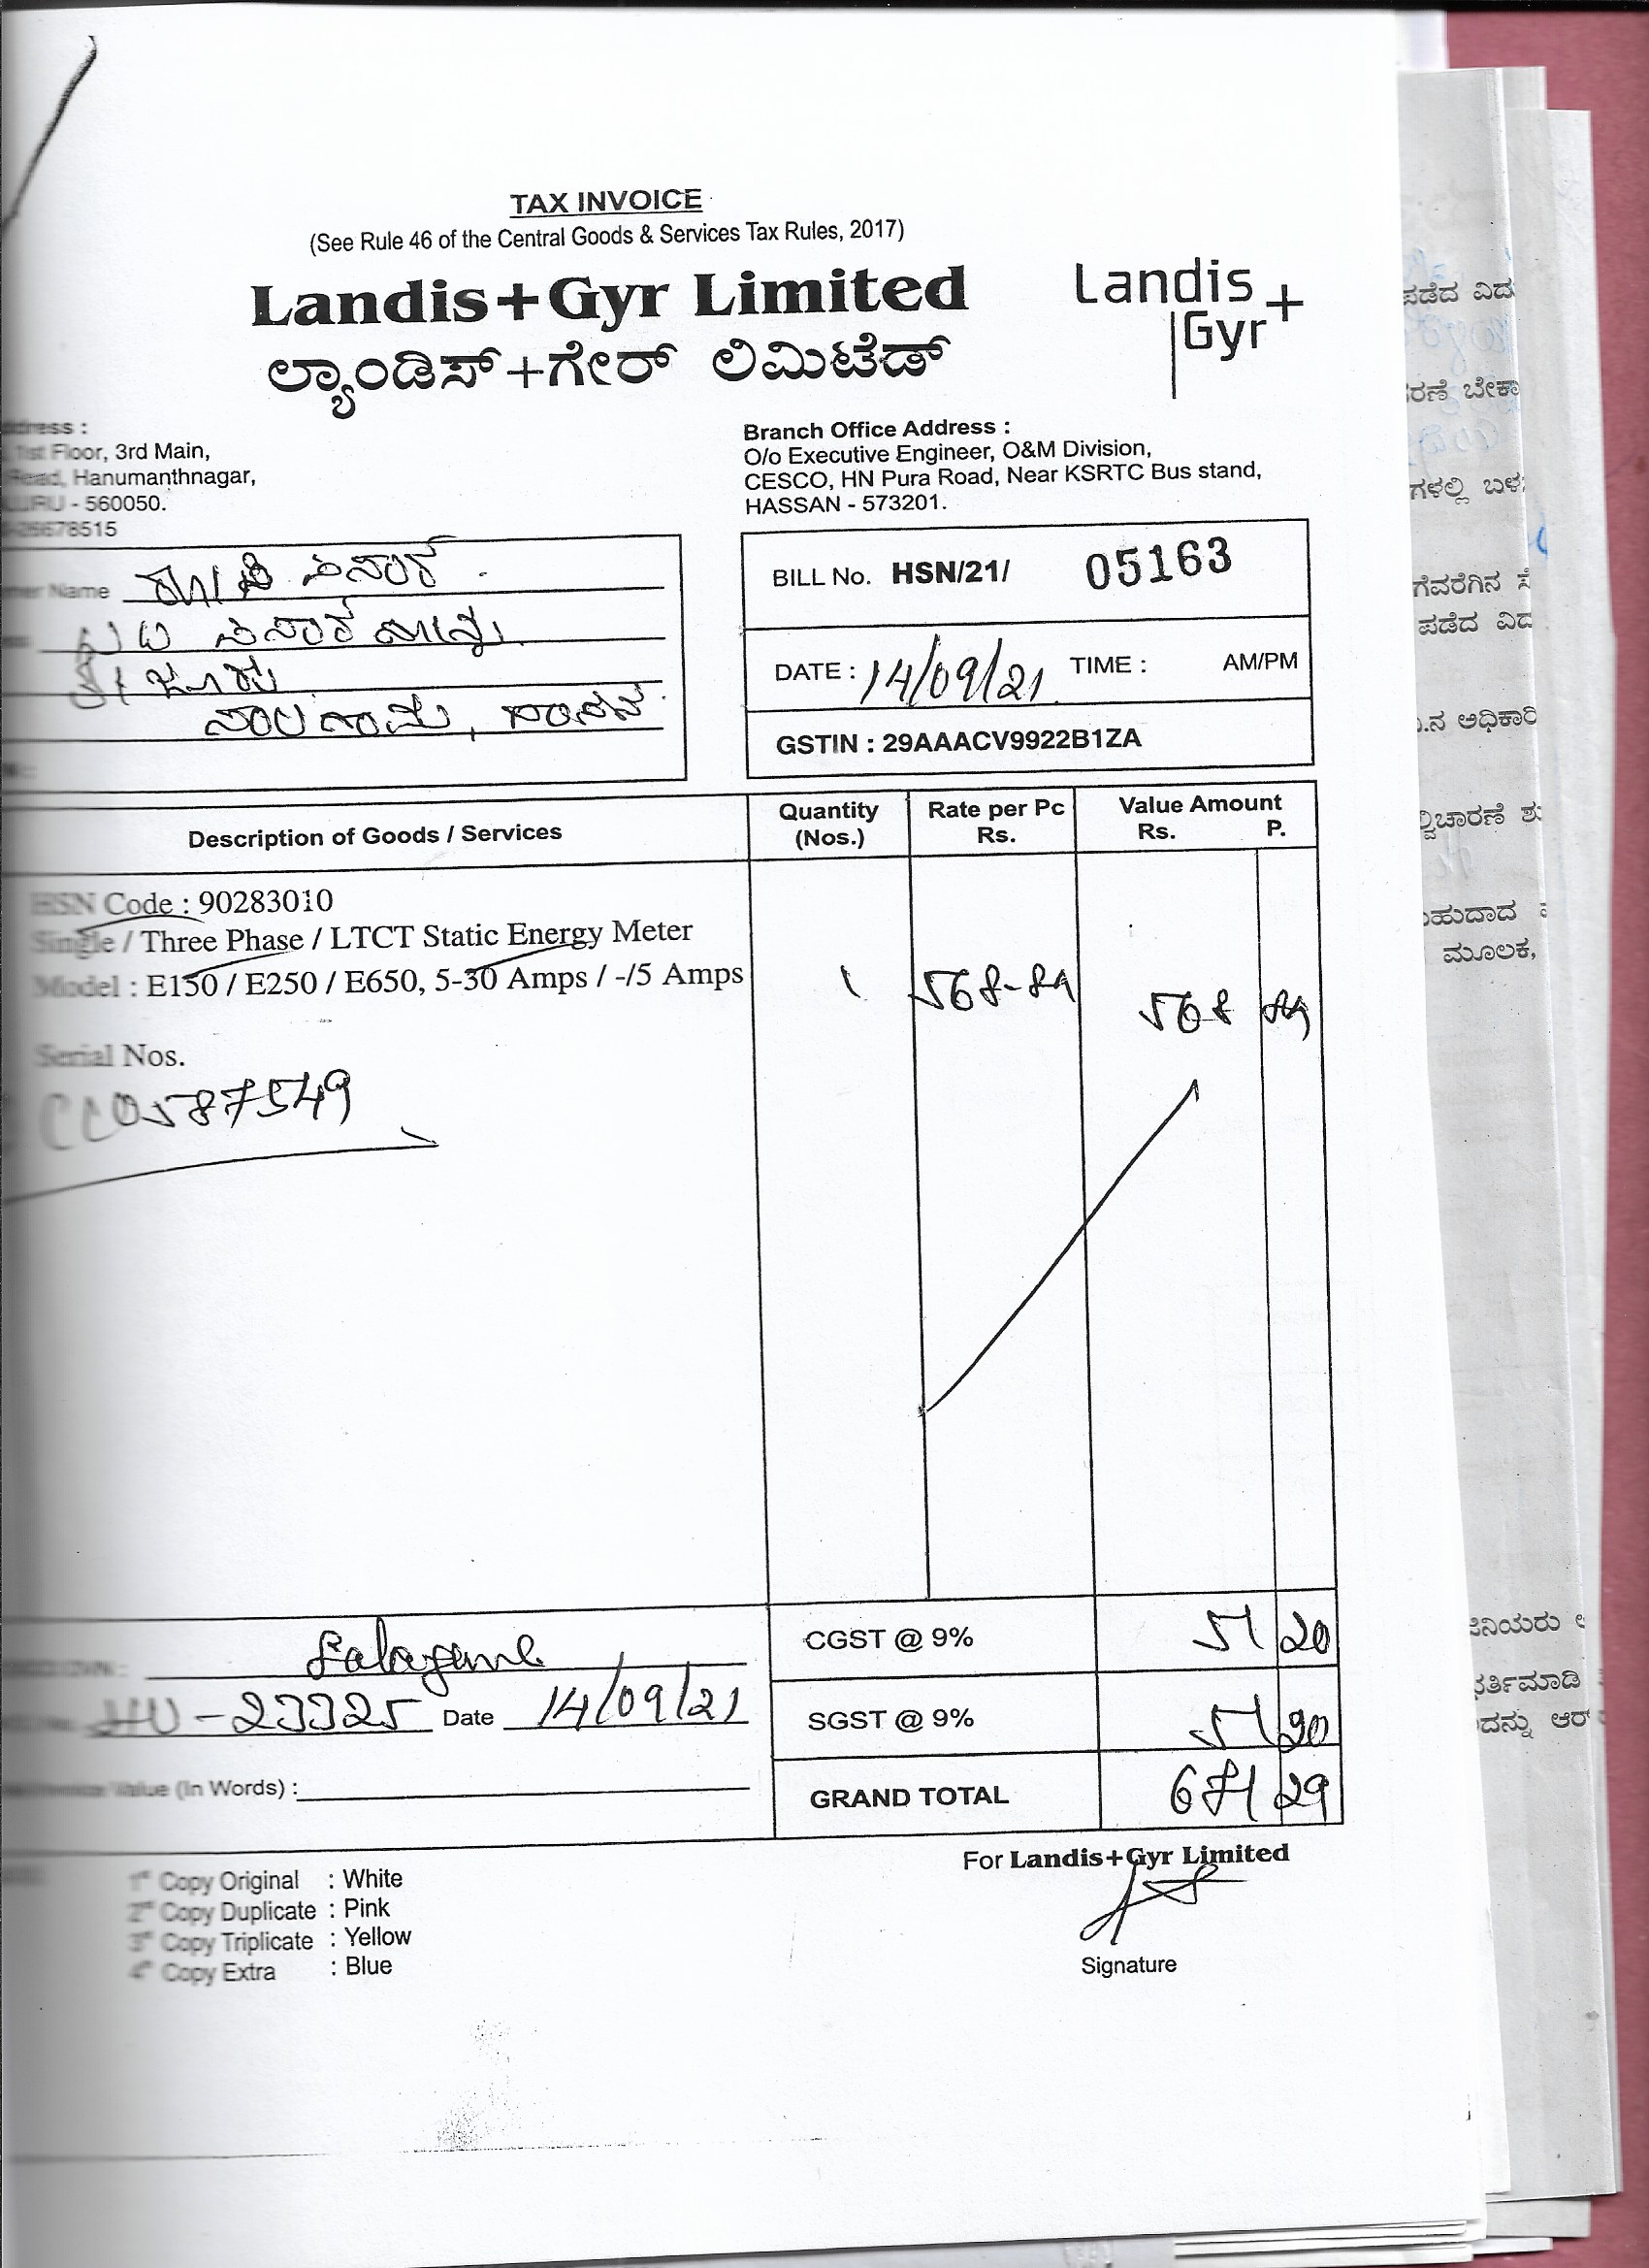 TAX INVOICE
(See Rule 46 of the Central Goods & Services Tax Rules, 2017)
Landis+Gyr Limited
ಲ್ಯಾಂಡಿಸ್+ಗೇರ್ ಲಿಮಿಟೆಡ್
Landis+
Gyr
1st Floor, 3rd Main,
Road, Hanumanthnagar,
- 560050.
26678515
Branch Office Address :
O/o Executive Engineer, O&M Division,
CESCO, HN Pura Road, Near KSRTC Bus stand,
HASSAN - 573201.
Name
ಸಾಲಗಾಮೆ, ಹಾಸನ
BILL No. HSN/21/ 05163
DATE : 14/09/21 TIME : AM/PM
GSTIN : 29AAACV9922B1ZA
Description of Goods / Services
Quantity (Nos.)
Rate per Pc Rs.
Value Amount Rs. P.
HSN Code : 90283010
Single / Three Phase / LTCT Static Energy Meter
Model : E150 / E250 / E650, 5-30 Amps / -/5 Amps
1 568-89 568 89
Serial Nos.
CC0587549
Salagame
23325 Date 14/09/21
Value (In Words) :
CGST @ 9% 51 20
SGST @ 9% 51 20
GRAND TOTAL 671 29
For Landis+Gyr Limited
Signature
1st Copy Original : White
2nd Copy Duplicate : Pink
3rd Copy Triplicate : Yellow
4th Copy Extra : Blue
ಪಡೆದ ವಿದ
ರಣೆ ಬೇಕಾ
ಗಳಲ್ಲಿ ಬಳ
ಗೆವರೆಗಿನ
ಪಡೆದ ವಿದ
ನ ಅಧಿಕಾರಿ
ವಿಚಾರಣೆ ಶು
ಬಹುದಾದ
ಮೂಲಕ,
ಜಿನಿಯರು
ಭರ್ತಿಮಾಡಿ
ದನ್ನು ಆರ್